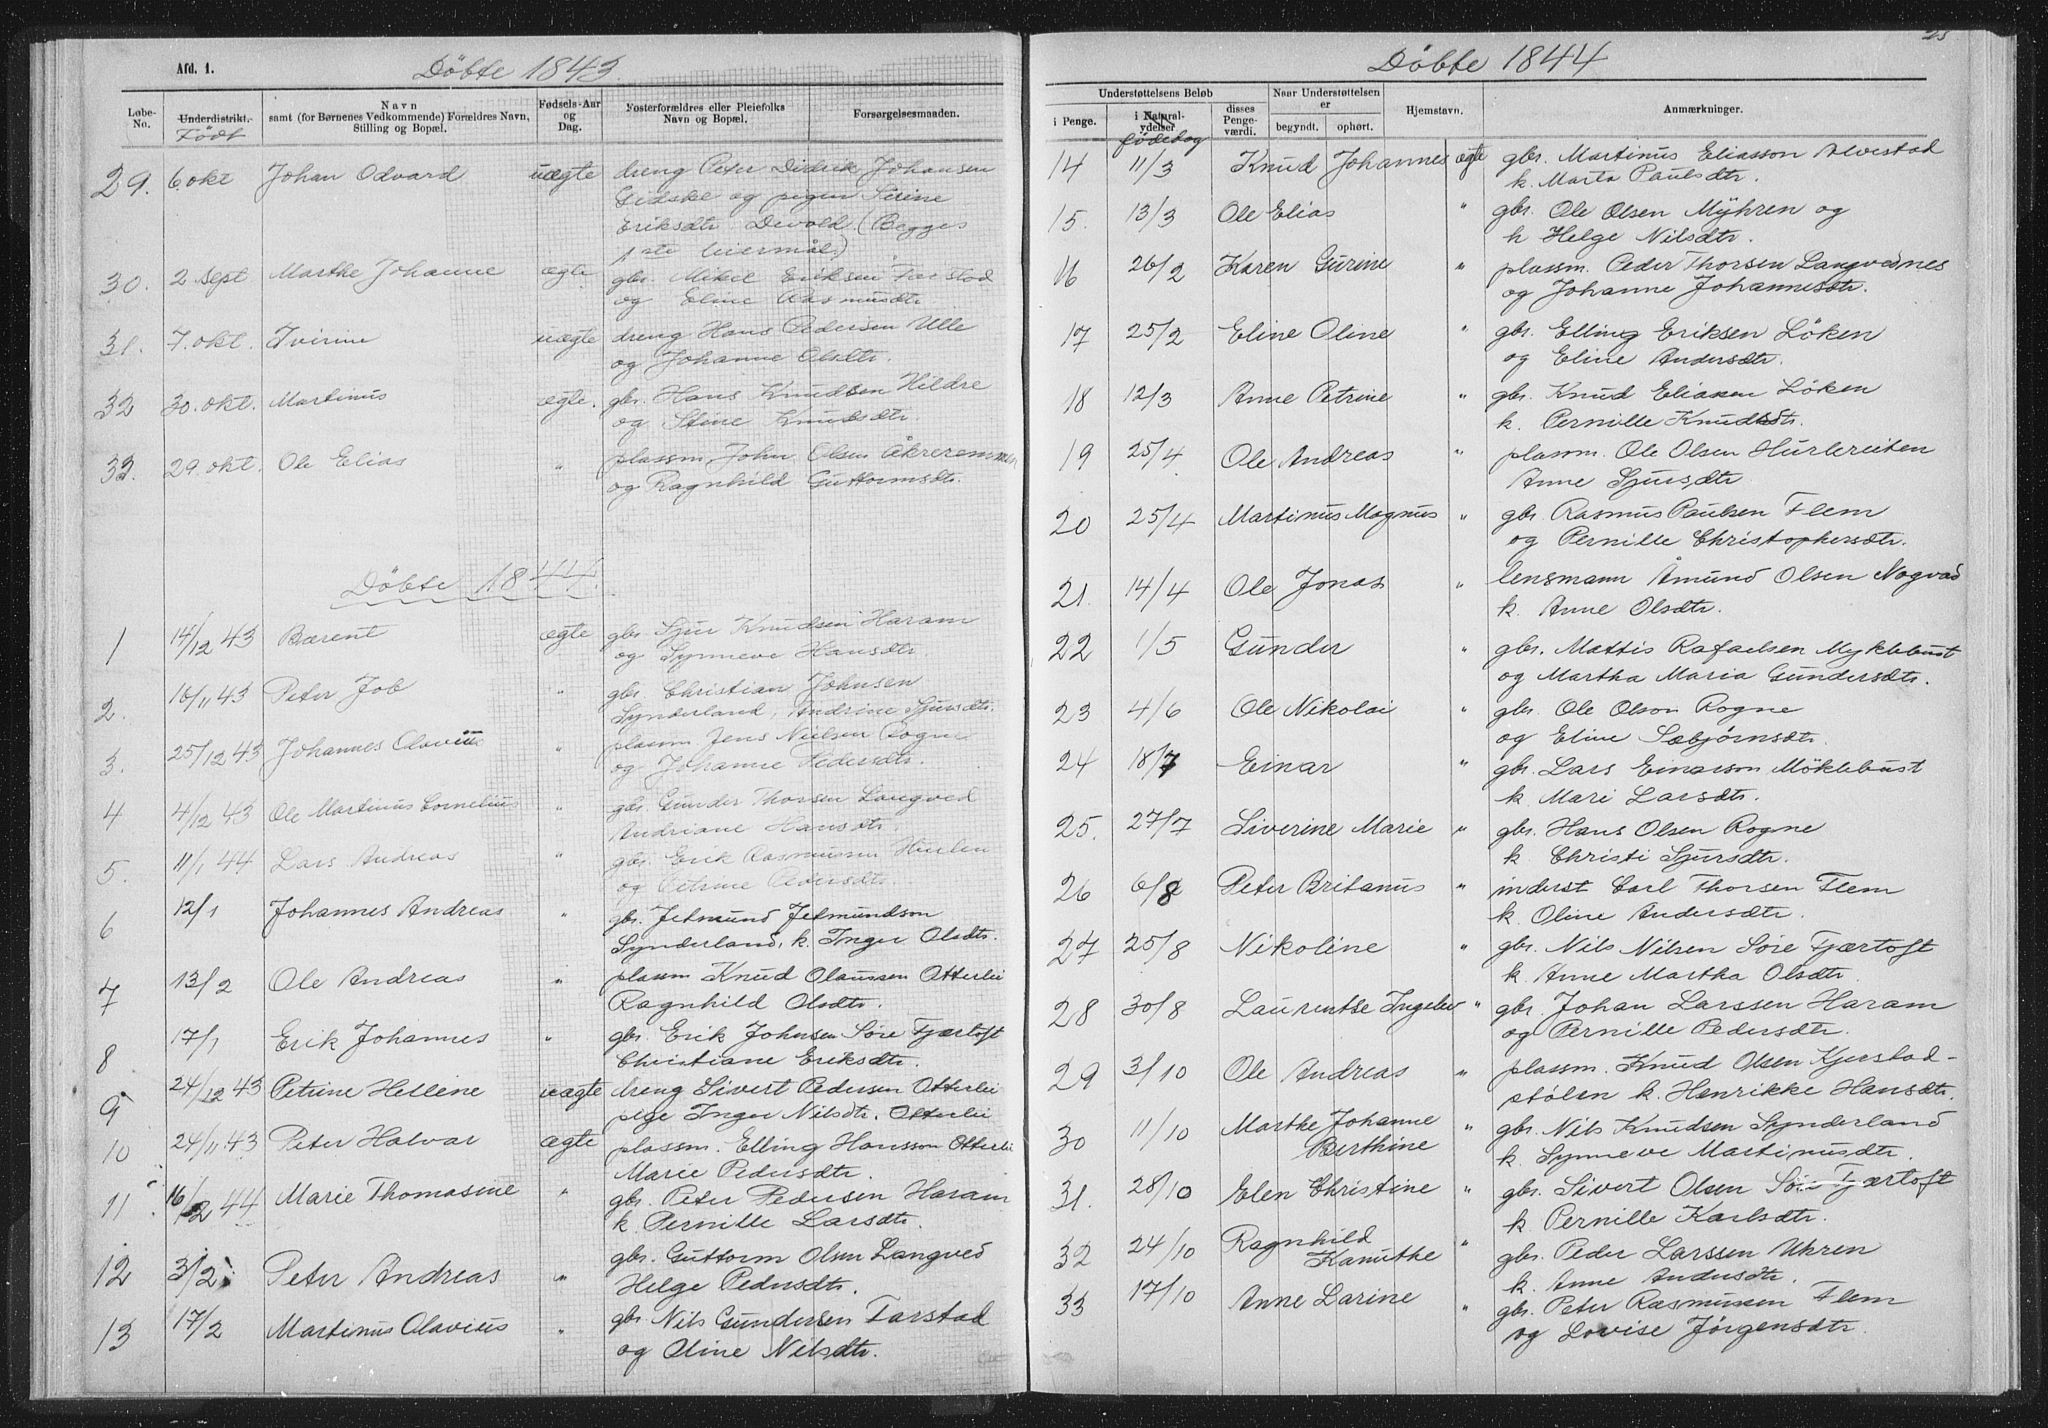 Afd. 1.
Døbte 1843.
Løbe-No.
Underdistrikt.
Født
Navn
samt (for Børnenes Vedkommende) Forældres Navn,
Stilling og Bopæl.
Fødsels-Aar
og
Dag.
Fosterforældres eller Pleiefolks
Navn og Bopæl.
Forsørgelsesmaaden.
29. 6 okt Johan Odvard uægte dreng Peter Didrik Johansen
Gidske og pigen Serine
Eriksdtr. Devold. (Begges
1ste leiermål)
30. 2 sept Marthe Johanne ægte gbr. Mikel Eriksen Farstad
og Eline Rasmusdtr.
31. 7. okt. Ivirine uægte dreng Hans Pedersen Ulle
og Johanne Olsdtr.
32 30. okt. Martinus ægte. gbr. Hans Knudsen Hildre
og Stine Knudsdtr.
33. 29. okt. Ole Elias " plassm. John Olsen Åkreremmen
og Ragnhild Guttormsdtr.
Døbte 1844.
1 14/12 43 Bærent ægte gbr. Sjur Knudsen Haram
og Synneve Hansdtr.
2. 10/11 43 Peter Job " gbr. Christian Johnsen
Synderland, Andrine Sjursdtr.
3. 25/12 43 Johannes Olavius " plassm. Jens Nielsen Rogne
og Johanne Pedersdtr.
4 4/12 43 Ole Martinus Cornelius " gbr. Gunder Thorsen Langved
Andriane Hansdtr.
5. 11/1 44 Lars Andreas " gbr. Erik Rasmussen Hurlen
og Petrine Pedersdtr.
6 12/1 Johannes Andreas " gbr. Jetmund Jetmundson
Synderland, k. Inger Olsdtr.
7 13/2 Ole Andreas " plassm Knud Olaussen Otterlei
Ragnhild Olsdtr.
8 17/1 Erik Johannes " gbr. Erik Johnsen Søre Fjærtoft
Christiane Eriksdtr.
9 24/12 43 Petrine Hellene uægte dreng Sivert Pedersen Otterlei
pige Inger Nilsdtr. Otterlei
10 24/11 43 Peter Halvar ægte plassm. Elling Hansson Otterlei
Marie Pedersdtr.
11 16/12 44 Marie Thomasine " gbr. Peter Pedersen Haram
k. Pernille Larsdtr.
12 3/2 Peter Andreas " gbr. Guttorm Olsen Langved
Helge Pedersdtr.
13 17/2 Martinus Olavius " gbr. Nils Gundersen Farstad
og Oline Nilsdtr.
Døbte 1844
Understøttelsens Beløb
i Penge.
i Natural-
ydelser
fødedag
disses
Penge-
værdi.
Naar Understøttelsen
er
begyndt.
ophørt.
Hjemstavn.
Anmærkninger.
14 11/3 Knud Johannes ægte gbr. Martinus Eliasson Alvestad
k. Marta Paulsdtr.
15. 13/3 Ole Elias " gbr. Ole Olsen Mÿhren og
k Helge Nilsdtr.
16 26/2 Karen Gurine " plassm. Peder Thorsen Langvednes
og Johanne Johannesdtr.
17 25/2 Eline Oline " gbr. Elling Eriksen Löken
og Eline Andersdtr.
18 12/3 Anne Petrine " gbr. Knud Eliasen Löken
k. Pernille Knudsdtr.
19 25/4 Ole Andreas " plassm. Ole Olsen Hurlereiten
Anne Sjursdtr.
20 25/4 Martinus Magnus " gbr. Rasmus Paulsen Flem
og Pernille Christophersdtr.
21. 14/4 Ole Jonas " lensmann Åmund Olsen Nogvad
k. Anne Olsdtr.
22 1/5 Gunder " gbr. Mattis Rafaelsen Myklebust
og Martha Maria Gundersdtr.
23 4/6 Ole Nikolai " gbr. Ole Olson Rogne
og Eline Sæbjørnsdtr.
24 18/7 Einar " gbr. Lars Einarson Möklebust
k. Mari Larsdtr.
25. 27/7 Siverine Marie " gbr. Hans Olsen Rogne
k. Christi Sjursdtr.
26 6/8 Peter Britanus " inderst Carl Thorsen Flem
k. Oline Andersdtr.
27 25/8 Nikoline " gbr. Nils Nilsen Söre Fjærtoft
k. Anne Martha Olsdtr.
28 30/8 Laurentse Ingelev " gbr. Johan Larssen Haram
og Pernille Pedersdtr.
29 3/10 Ole Andreas " plassm. Knud Olsen Kjerstad-
stølen k. Henrikke Hansdtr.
30 11/10 Marthe Johanne " gbr. Nils Knudsen Synderland
Berthine k. Synneve Martinusdtr.
31. 28/10 Elen Christine " gbr. Sivert Olsen Søre Fjærtoft
k. Pernille Karlsdtr.
32 24/10 Ragnhild " gbr. Peder Larssen Uhren
Kanuthe k. Anne Andersdtr.
33 17/10 Anne Larine " gbr. Peter Rasmussen Flem
og Lovise Jørgensdtr.